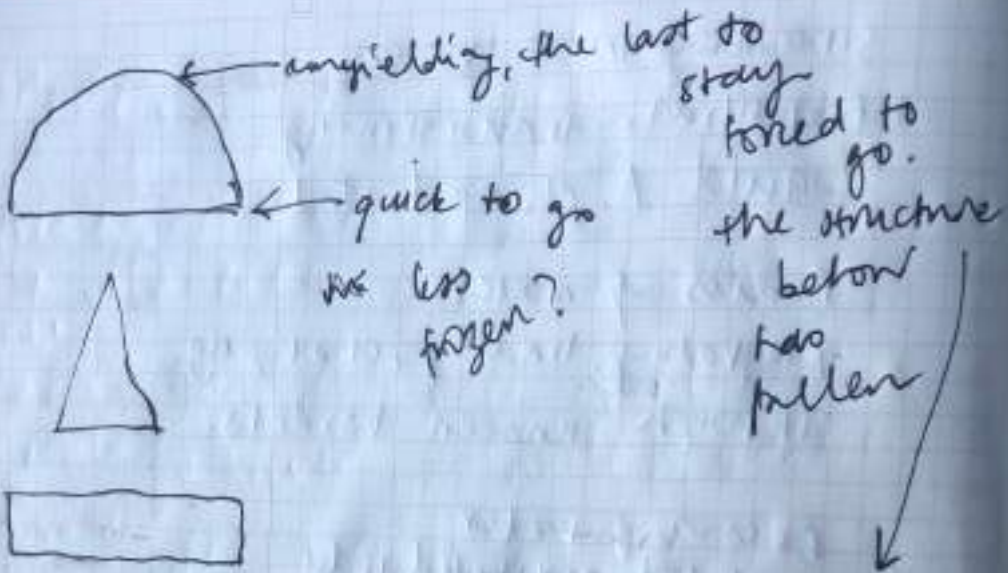 unyielding, the last to
stay
forced to
go.
the structure
below
has
fallen
quick to go
less
frozen?